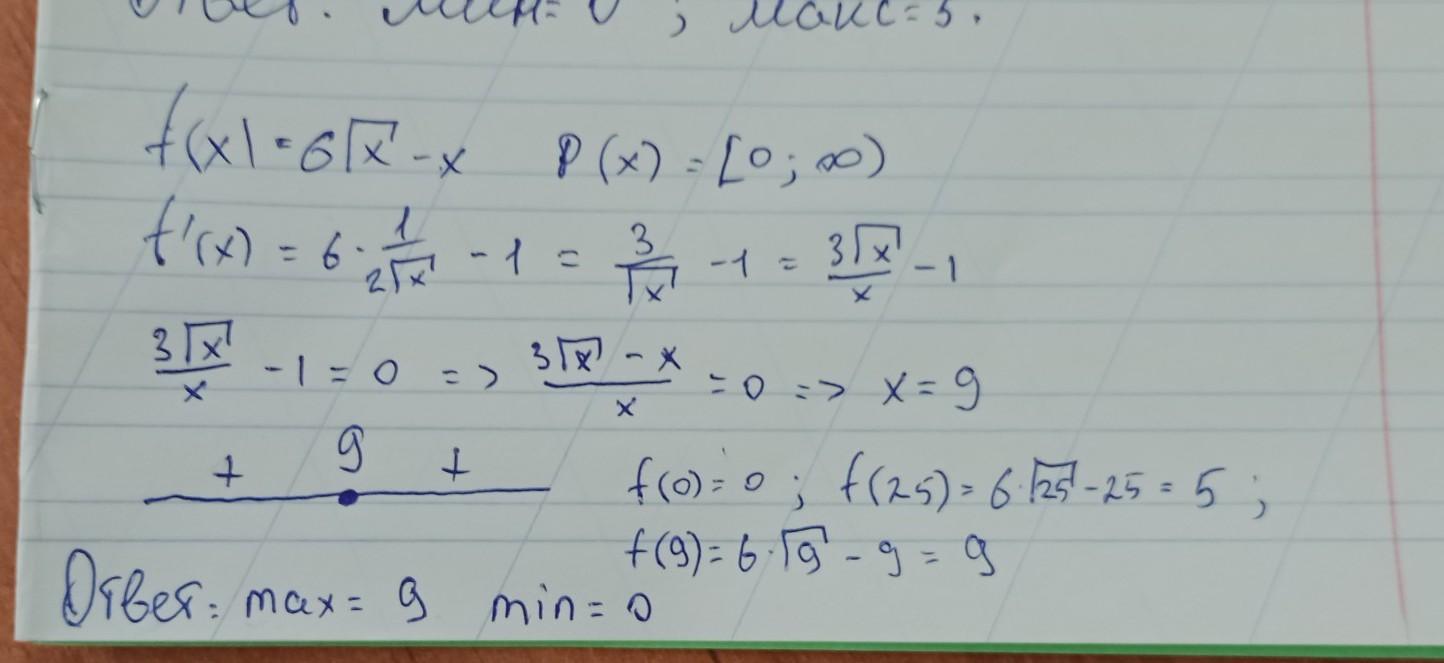 Ответ: Мин= 0 ; Макс= 5.
f(x)=6√x -x P(x) = [0; ∞)
f'(x) = 6· 1/2√x - 1 = 3/√x -1 = 3√x/x -1
3√x/x -1 = 0 => 3√x - x/x = 0 => x = 9
+ 9 + f(0)= 0 ; f(25)= 6·√25 -25 = 5 ;
f(9)= 6·√9 - 9 = 9
Ответ: max= 9 min= 0